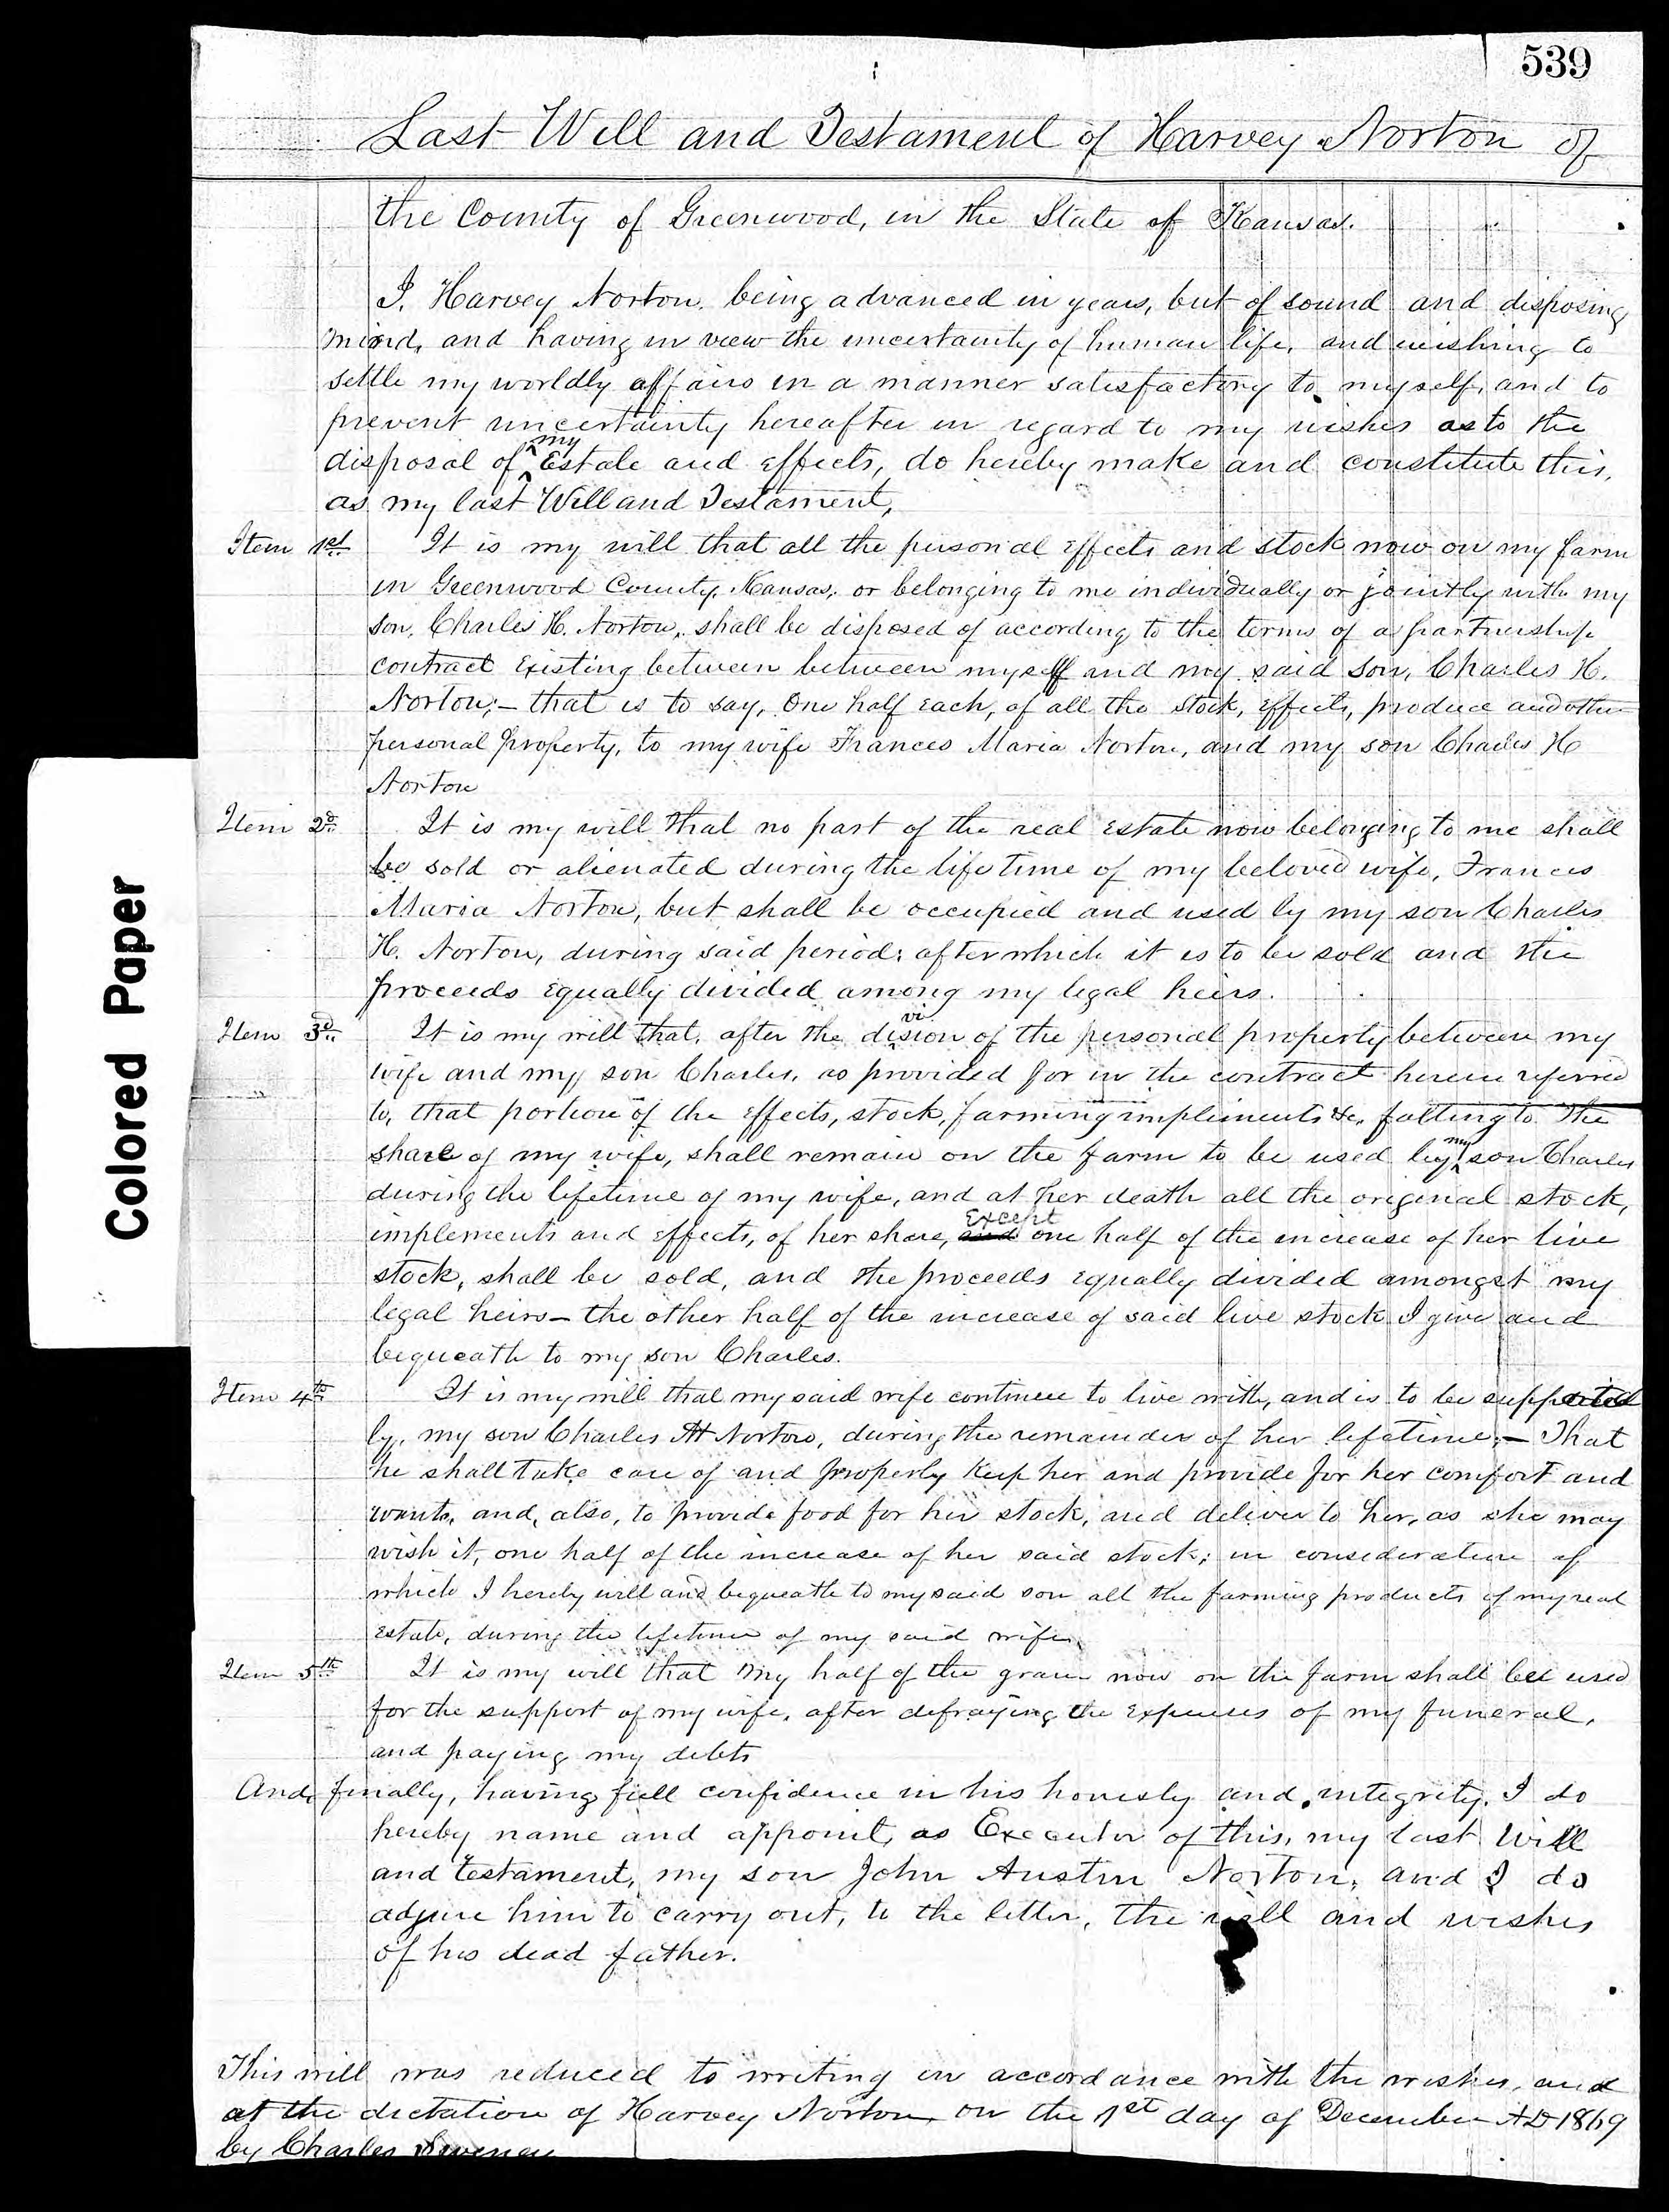 539
Last Will and Testament of Harvey Norton of
the County of Greenwood, in the State of Kansas.
I, Harvey Norton, being advanced in years, but of sound and disposing
mind, and having in view the uncertainty of human life, and wishing to
settle my worldly affairs in a manner satisfactory to myself, and to
prevent uncertainty hereafter in regard to my wishes as to the
disposal of my Estate and effects, do hereby make and constitute this,
as my last Will and Testament,
Item 1st. It is my will that all the personal effects and stock now on my farm
in Greenwood County, Kansas, or belonging to me individually or jointly with my
son, Charles H. Norton, shall be disposed of according to the terms of a partnership
contract Existing between between myself and my said son, Charles H.
Norton;— that is to say, One half Each, of all the stock, effects, produce and other
personal property, to my wife Frances Maria Norton, and my son Charles H
Norton
Item 2d. It is my will that no part of the real Estate now belonging to me shall
be sold or alienated during the life time of my beloved wife, Frances
Maria Norton, but shall be occupied and used by my son Charles
H. Norton, during said period; after which it is to be sold and the
proceeds Equally divided among my legal heirs.
Item 3d. It is my will that, after the division of the personal property between my
wife and my son Charles, as provided for in the contract herein referred
to, that portion of the effects, stock, farming impliments &c. falling to the
share of my wife, shall remain on the farm to be used by my son Charles
during the lifetime of my wife, and at her death all the original stock,
implements and effects, of her share, and Except one half of the increase of her live
stock, shall be sold, and the proceeds equally divided amongst my
legal heirs — the other half of the increase of said live stock I give and
bequeath to my son Charles.
Item 4th. It is my will that my said wife continue to live with, and is to be supported
by, my son Charles H Norton, during the remainder of her lifetime;— That
he shall take care of and properly Keep her and provide for her comfort and
wants, and, also, to provide food for her stock, and deliver to her, as she may
wish it, one half of the increase of her said stock; in consideration of
which I hereby will and bequeath to my said son all the farming products of my real
Estate, during the lifetime of my said wife.
Item 5th It is my will that my half of the grain now on the farm shall be used
for the support of my wife, after defraying the Expenses of my funeral,
and paying my debts
And, finally, having full confidence in his honesty and integrity, I do
hereby name and appoint, as Executor of this, my last Will
and testament, my son John Austin Norton, and I do
adjure him to carry out, to the letter, the will and wishes
of his dead father.
This will was reduced to writing in accordance with the wishes, and
at the dictation of Harvey Norton on the 1st day of December AD 1869
by Charles Sweney
Colored Paper